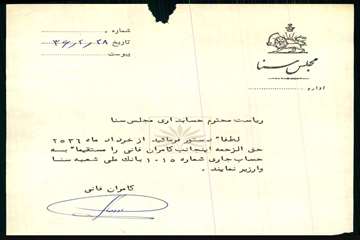 مجلس سنا
اداره
شماره
تاریخ ۳۶/۲/۲۸
پیوست
ریاست محترم حسابداری مجلس سنا
لطفا" دستور فرمائید از خرداد ماه ۲۵۳۶
حق الزحمه اینجانب کامران فانی را مستقیما" به
حساب جاری شماره ۱۰۱۵ بانک ملی شعبه سنا
واریز نمایند .
کامران فانی